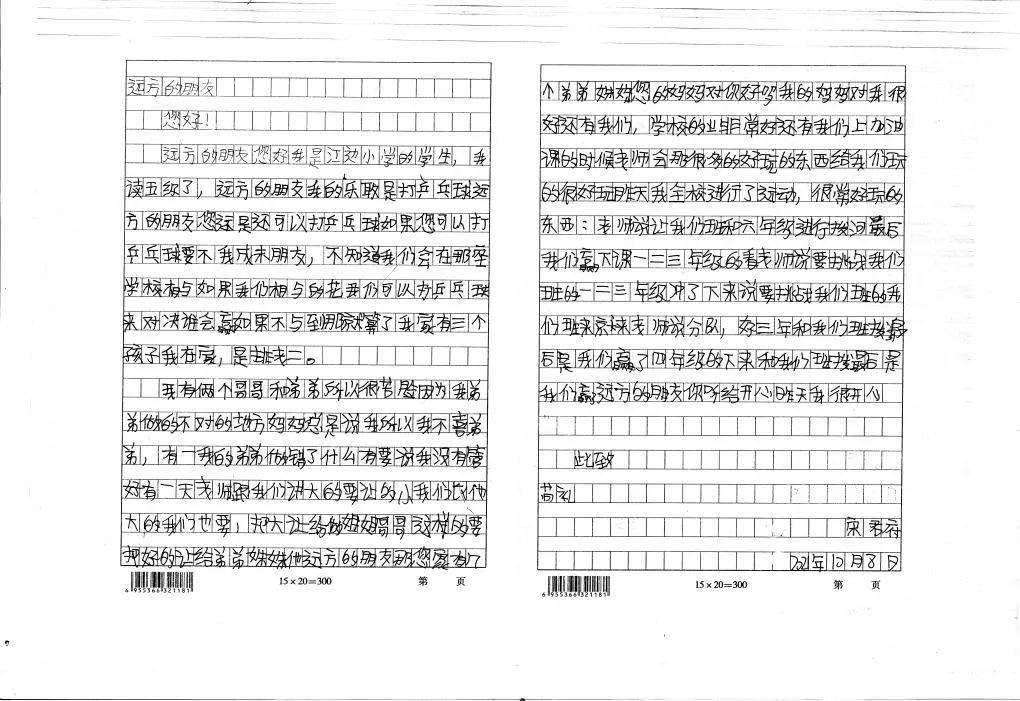 远方的朋友
您好!
远方的朋友您好我是江边小学的学生，我
读五级了，远方的朋友我的乐歌是打乒乓球远
方的朋友您还是还可以打乒乓球如果您可以打
乒乓球要不我成来朋友，不知道我们会在那座
学校相与如果我们相与的花我们可以打乒乓球
来对决谁会赢如果不与到那就算了我家有三个
孩子我在家，是排老二。
我有俩个哥哥和弟弟所以很苦脸因为我弟
弟做的不对的地方妈妈总是说我所以我不喜弟
弟，有一我的弟弟做错了什么有要说我没有管
好有一天老师跟我们讲大的要让的小我们比他
大的我们也要，把大让给的姐姐哥哥这样的要
把好的让给弟弟妹妹他远方的朋友那您家有几
个弟弟妹妹您的妈妈对你好吗我的妈妈对我很
好还有我们，学校的业非常好还有我们上加油
课的时候老师会那很多的好玩的东西给我们玩
的很好玩昨天我全校进行了运动，很常好玩的
东西：老师说让我们班和六年级进行拔河最后
我们赢下课一二三年级的看老师说要挑战我们
班的一二三年级冲了下来说要挑战我们班的我
们班来京来老师说分队，好三年和我们班拔最
后是我们赢了四年级的下来和我们班拔最后是
我们赢远方的朋友你听给开心昨天我很开心
此致
苟礼
宋君
2021年10月8日
15×20=300
第 页
6 955366 321181
15×20=300
第 页
6 955366 321181